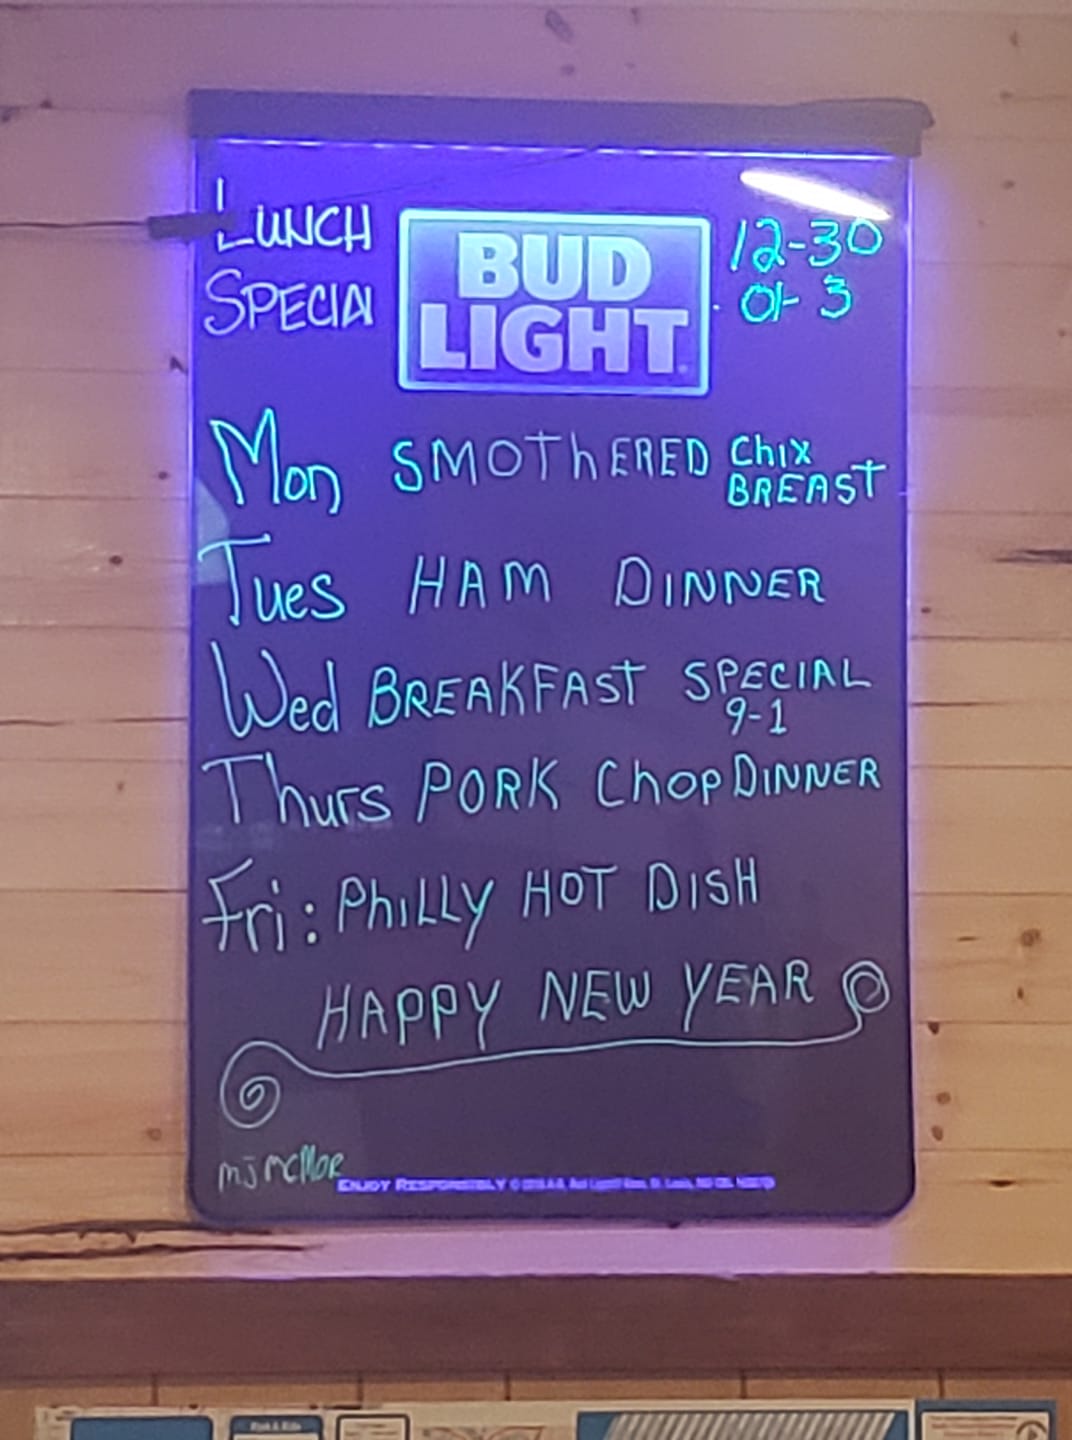 LUNCH
SPECIAL
BUD
LIGHT
12-30
01-3
Mon SMOThERED Chix
BREAST
Tues HAM DINNER
Wed BREAKFAST SPECIAL
9-1
Thurs PORK ChOP DINNER
Fri: PhiLLY HOT DISH
HAPPY NEW YEAR
ENJOY RESPONSIBLY